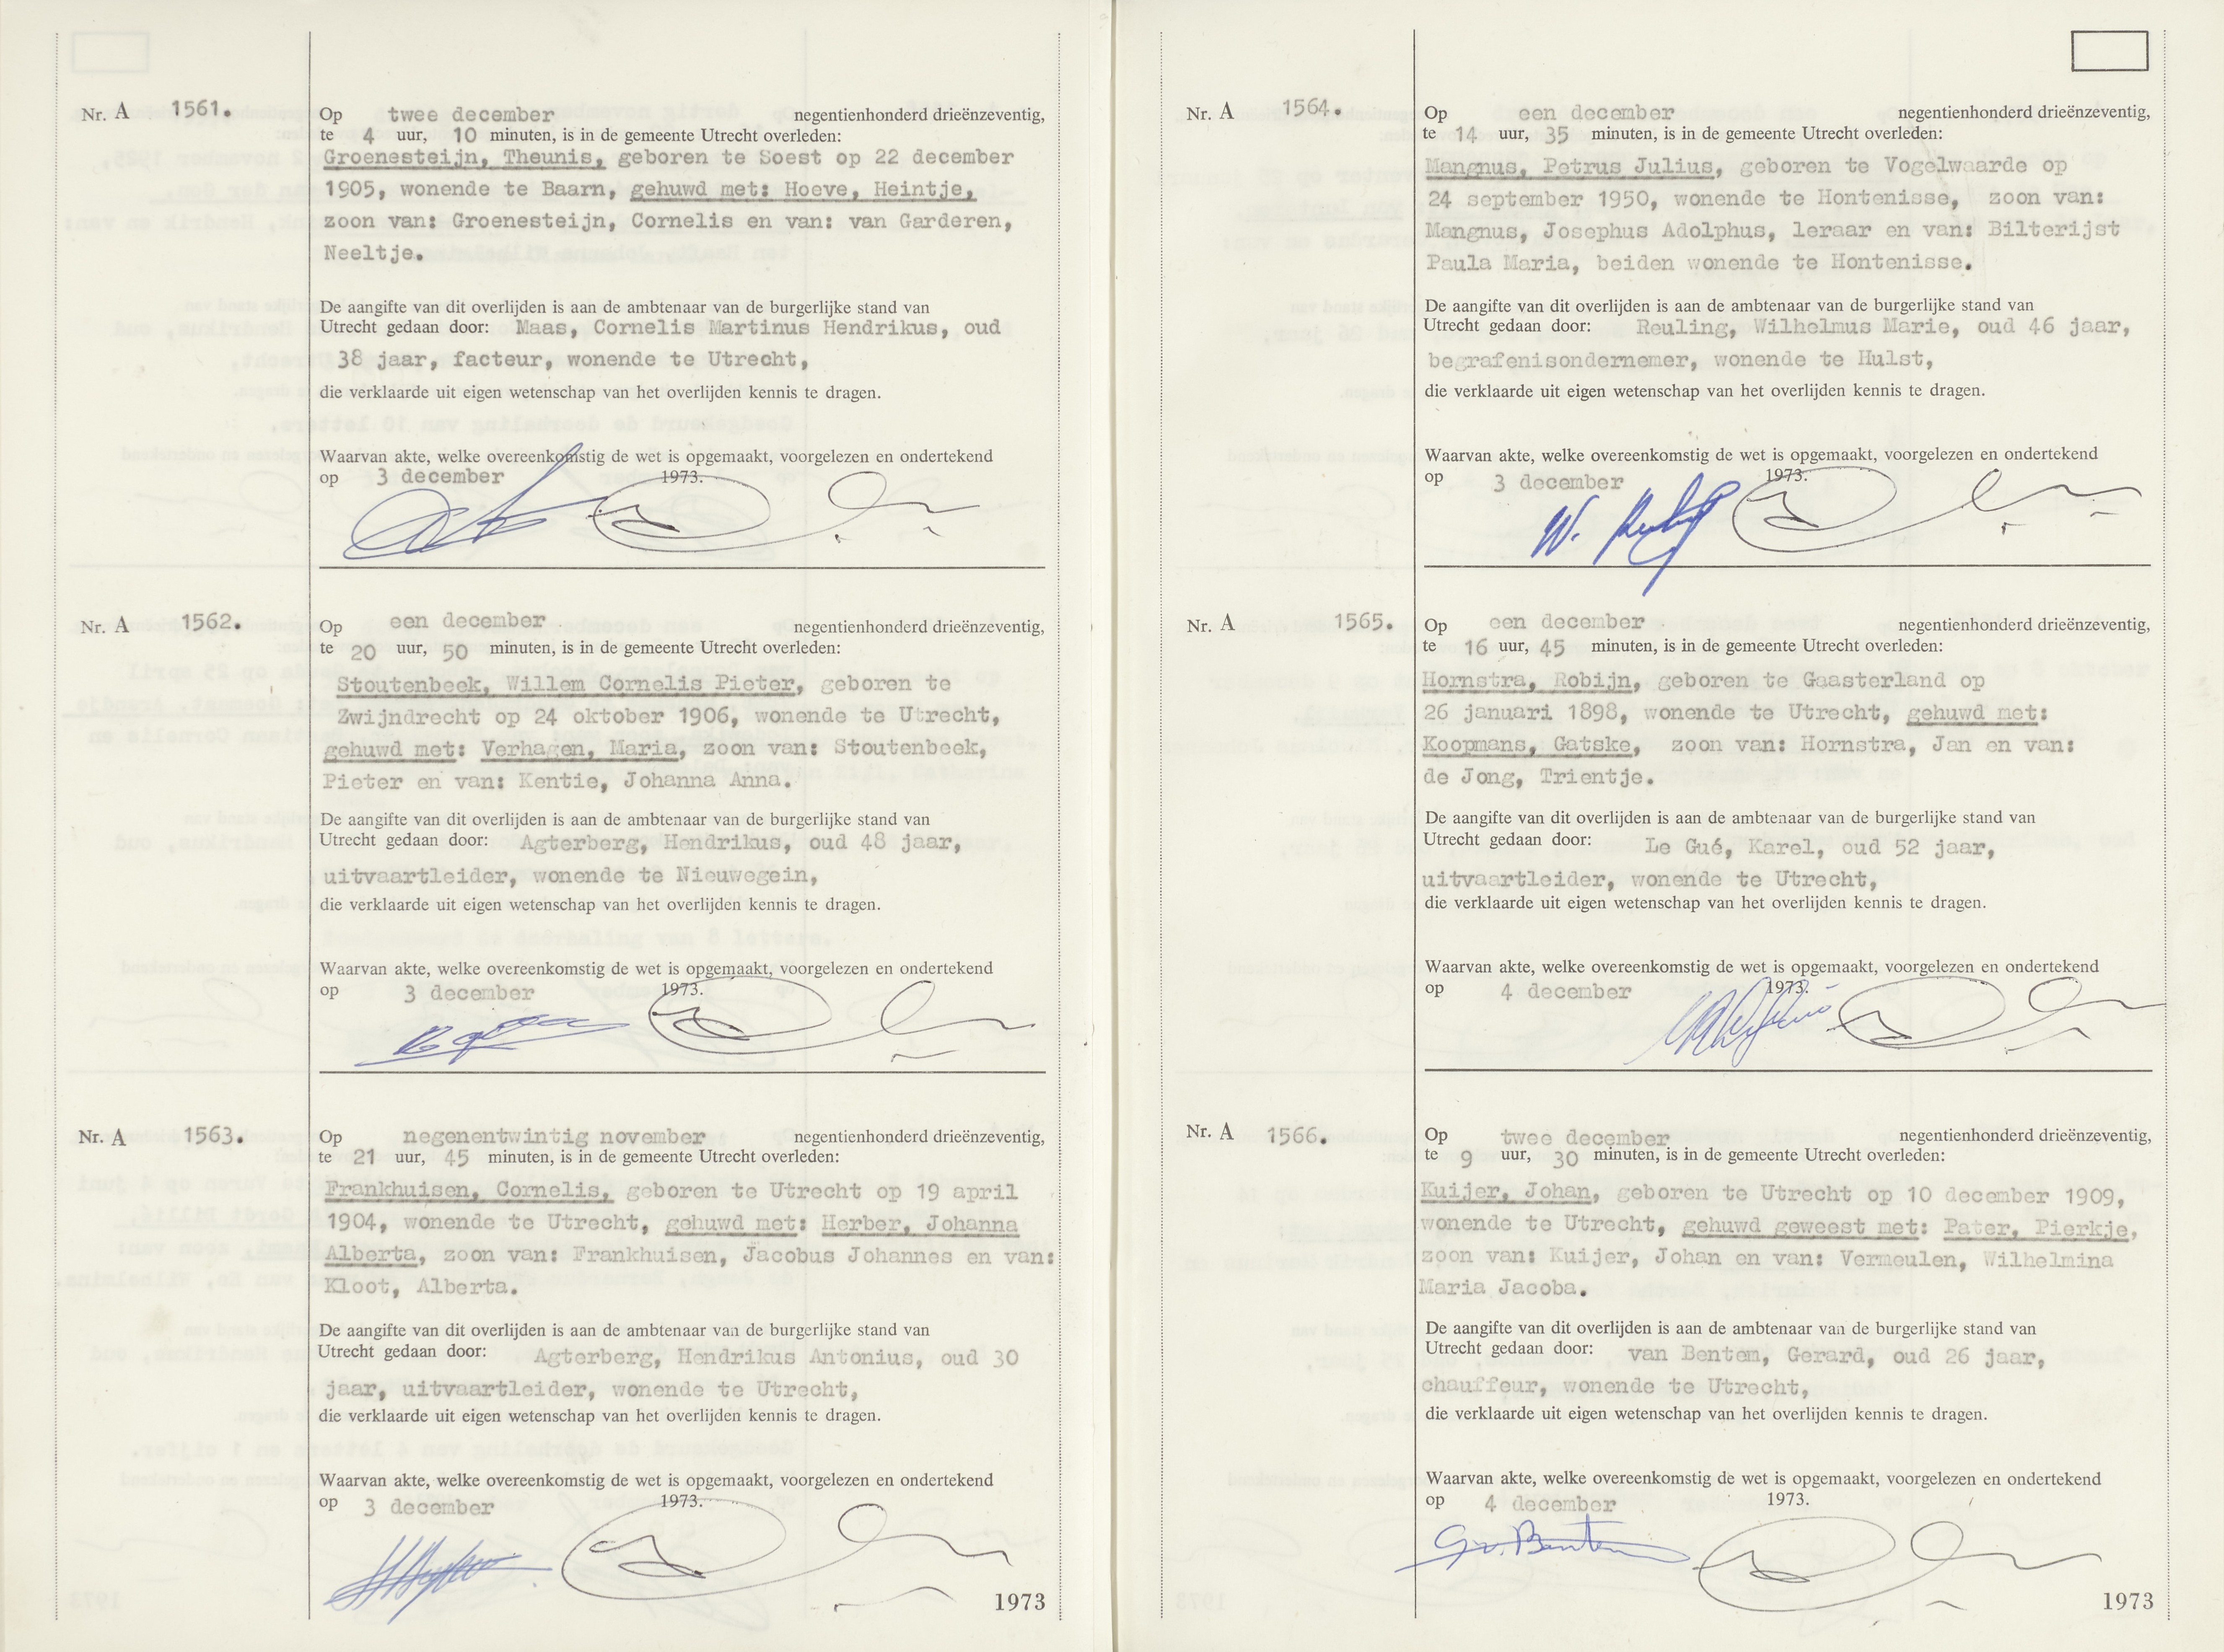 Nr. A 1561.
Op twee december negentienhonderd drieënzeventig,
te 4 uur, 10 minuten, is in de gemeente Utrecht overleden:
Groenesteijn, Theunis, geboren te Soest op 22 december
1905, wonende te Baarn, gehuwd met: Hoeve, Heintje,
zoon van: Groenesteijn, Cornelis en van: van Garderen,
Neeltje.
De aangifte van dit overlijden is aan de ambtenaar van de burgerlijke stand van
Utrecht gedaan door: Maas, Cornelis Martinus Hendrikus, oud
38 jaar, facteur, wonende te Utrecht,
die verklaarde uit eigen wetenschap van het overlijden kennis te dragen.
Waarvan akte, welke overeenkomstig de wet is opgemaakt, voorgelezen en ondertekend
op 3 december 1973.
Nr. A 1562.
Op een december negentienhonderd drieënzeventig,
te 20 uur, 50 minuten, is in de gemeente Utrecht overleden:
Stoutenbeek, Willem Cornelis Pieter, geboren te
Zwijndrecht op 24 oktober 1906, wonende te Utrecht,
gehuwd met: Verhagen, Maria, zoon van: Stoutenbeek,
Pieter en van: Kentie, Johanna Anna.
De aangifte van dit overlijden is aan de ambtenaar van de burgerlijke stand van
Utrecht gedaan door: Agterberg, Hendrikus, oud 48 jaar,
uitvaartleider, wonende te Nieuwegein,
die verklaarde uit eigen wetenschap van het overlijden kennis te dragen.
Waarvan akte, welke overeenkomstig de wet is opgemaakt, voorgelezen en ondertekend
op 3 december 1973.
Nr. A 1563.
Op negenentwintig november negentienhonderd drieënzeventig,
te 21 uur, 45 minuten, is in de gemeente Utrecht overleden:
Frankhuisen, Cornelis, geboren te Utrecht op 19 april
1904, wonende te Utrecht, gehuwd met: Herber, Johanna
Alberta, zoon van: Frankhuisen, Jacobus Johannes en van:
Kloot, Alberta.
De aangifte van dit overlijden is aan de ambtenaar van de burgerlijke stand van
Utrecht gedaan door: Agterberg, Hendrikus Antonius, oud 30
jaar, uitvaartleider, wonende te Utrecht,
die verklaarde uit eigen wetenschap van het overlijden kennis te dragen.
Waarvan akte, welke overeenkomstig de wet is opgemaakt, voorgelezen en ondertekend
op 3 december 1973.
1973
Nr. A 1564.
Op een december negentienhonderd drieënzeventig,
te 14 uur, 35 minuten, is in de gemeente Utrecht overleden:
Mangnus, Petrus Julius, geboren te Vogelwaarde op
24 september 1950, wonende te Hontenisse, zoon van:
Mangnus, Josephus Adolphus, leraar en van: Bilterijst
Paula Maria, beiden wonende te Hontenisse.
De aangifte van dit overlijden is aan de ambtenaar van de burgerlijke stand van
Utrecht gedaan door: Reuling, Wilhelmus Marie, oud 46 jaar,
begrafenisondernemer, wonende te Hulst,
die verklaarde uit eigen wetenschap van het overlijden kennis te dragen.
Waarvan akte, welke overeenkomstig de wet is opgemaakt, voorgelezen en ondertekend
op 3 december 1973.
Nr. A 1565.
Op een december negentienhonderd drieënzeventig,
te 16 uur, 45 minuten, is in de gemeente Utrecht overleden:
Hornstra, Robijn, geboren te Gaasterland op
26 januari 1898, wonende te Utrecht, gehuwd met:
Koopmans, Gatske, zoon van: Hornstra, Jan en van:
de Jong, Trientje.
De aangifte van dit overlijden is aan de ambtenaar van de burgerlijke stand van
Utrecht gedaan door: Le Gué, Karel, oud 52 jaar,
uitvaartleider, wonende te Utrecht,
die verklaarde uit eigen wetenschap van het overlijden kennis te dragen.
Waarvan akte, welke overeenkomstig de wet is opgemaakt, voorgelezen en ondertekend
op 4 december 1973.
Nr. A 1566.
Op twee december negentienhonderd drieënzeventig,
te 9 uur, 30 minuten, is in de gemeente Utrecht overleden:
Kuijer, Johan, geboren te Utrecht op 10 december 1909,
wonende te Utrecht, gehuwd geweest met: Pater, Pierkje,
zoon van: Kuijer, Johan en van: Vermeulen, Wilhelmina
Maria Jacoba.
De aangifte van dit overlijden is aan de ambtenaar van de burgerlijke stand van
Utrecht gedaan door: van Bentem, Gerard, oud 26 jaar,
chauffeur, wonende te Utrecht,
die verklaarde uit eigen wetenschap van het overlijden kennis te dragen.
Waarvan akte, welke overeenkomstig de wet is opgemaakt, voorgelezen en ondertekend
op 4 december 1973.
G. v. Bentem
1973